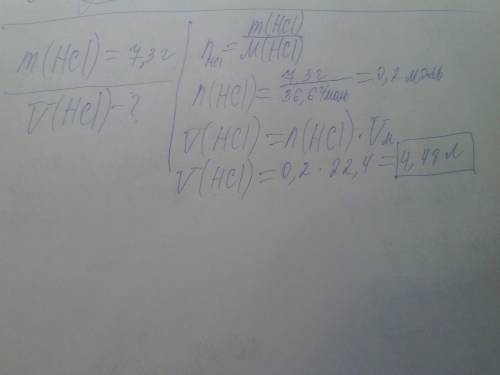 m(HCl) = 7,3г
V(HCl) - ?
n HCl = m(HCl) / M(HCl)
n(HCl) = 7,3г / 36,6г/моль = 0,2 моль
V(HCl) = n(HCl) · Vм
V(HCl) = 0,2 · 22,4 = 4,48 л